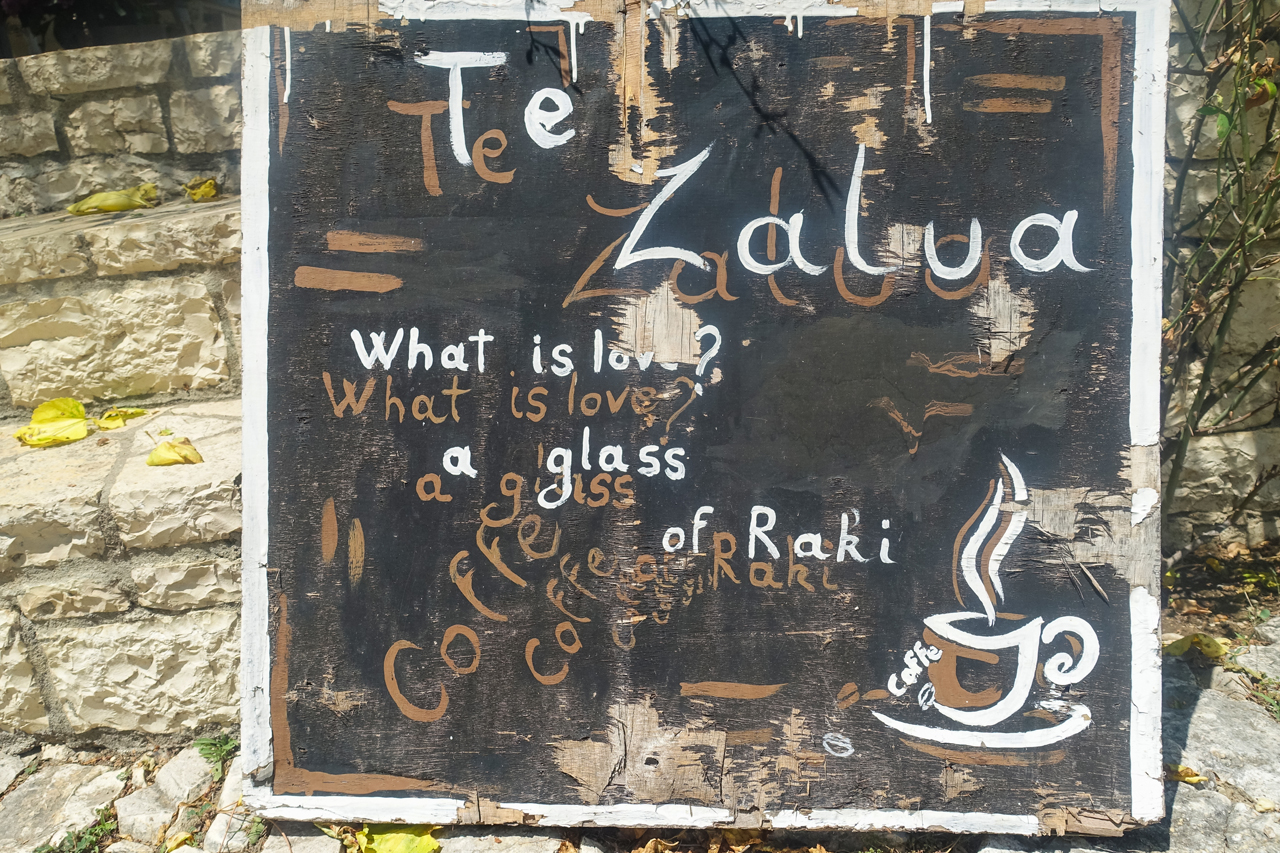 Te
Te
Zalua
Zalua
What is love?
What is love?
a glass
a glass
of Raki
Raki
Coffe
Coffe
caffe